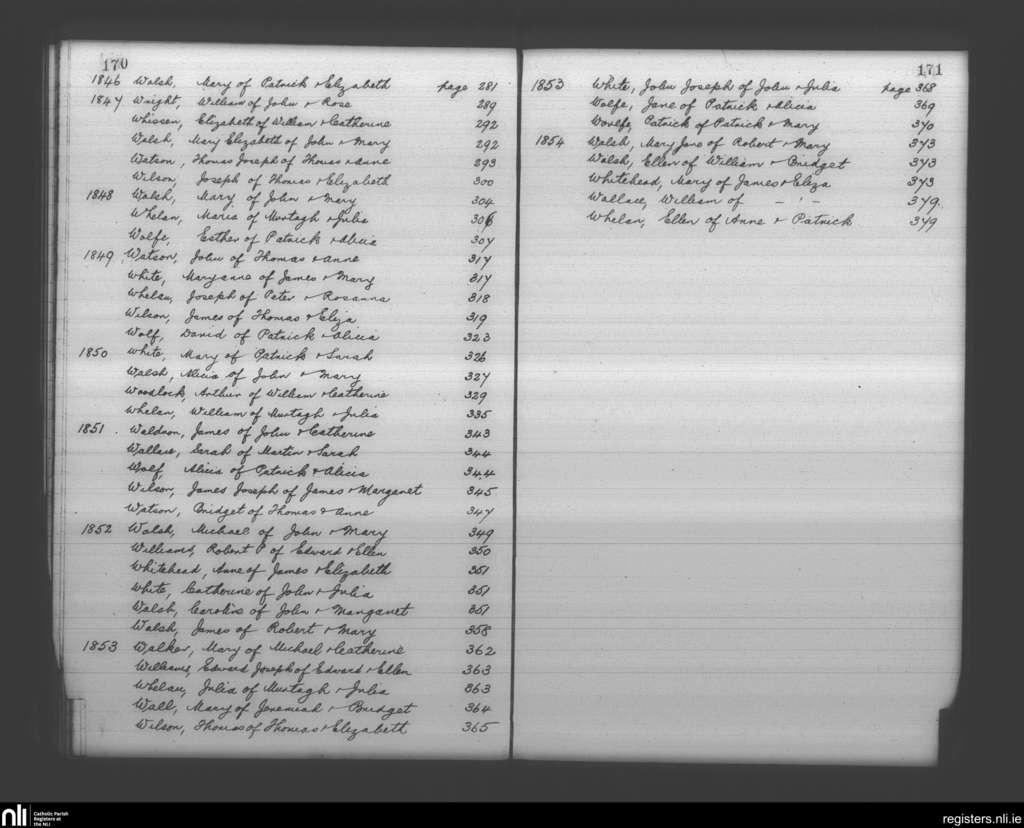 170
1846 Walsh, Mary of Patrick & Elizabeth page 281
1847 Wright, William of John & Rose 289
Whissen, Elizabeth of William & Catherine 292
Walsh, Mary Elizabeth of John & Mary 292
Watson, Thomas Joseph of Thomas & Anne 293
Wilson, Joseph of Thomas & Elizabeth 300
1848 Walsh, Mary of John & Mary 304
Whelan, Maria of Murtagh & Julia 306
Wolfe, Esther of Patrick & Alicia 307
1849 Watson, John of Thomas & Anne 317
White, Maryanne of James & Mary 317
Whelan, Joseph of Peter & Rosanna 318
Wilson, James of Thomas & Eliza 319
Wolf, David of Patrick & Alicia 323
1850 White, Mary of Patrick & Sarah 326
Walsh, Alicia of John & Mary 327
Woodlock, Arthur of William & Catherine 329
Whelan, William of Murtagh & Julia 335
1851 Waldron, James of John & Catherine 343
Wallace, Sarah of Martin & Sarah 344
Wolf, Alicia of Patrick & Alicia 344
Wilson, James Joseph of James & Margaret 345
Watson, Bridget of Thomas & Anne 347
1852 Walsh, Michael of John & Mary 349
Williams, Robert P of Edward & Ellen 350
Whitehead, Anne of James & Elizabeth 351
White, Catherine of John & Julia 351
Walsh, Caroline of John & Margaret 351
Walsh, James of Robert & Mary 358
1853 Walker, Mary of Michael & Catherine 362
Williams, Edward Joseph of Edward & Ellen 363
Whelan, Julia of Murtagh & Julia 363
Wall, Mary of Jeremiah & Bridget 364
Wilson, Thomas of Thomas & Elizabeth 365
171
1853 White, John Joseph of John & Julia page 368
Wolfe, Jane of Patrick & Alicia 369
Woulfe, Patrick of Patrick & Mary 370
1854 Walsh, Mary Jane of Robert & Mary 373
Walsh, Ellen of William & Bridget 373
Whitehead, Mary of James & Eliza 373
Wallace, William of — ' — 379.
Whelan, Ellen of Anne & Patrick 379
nli Catholic Parish
Registers at
the NLI
registers.nli.ie